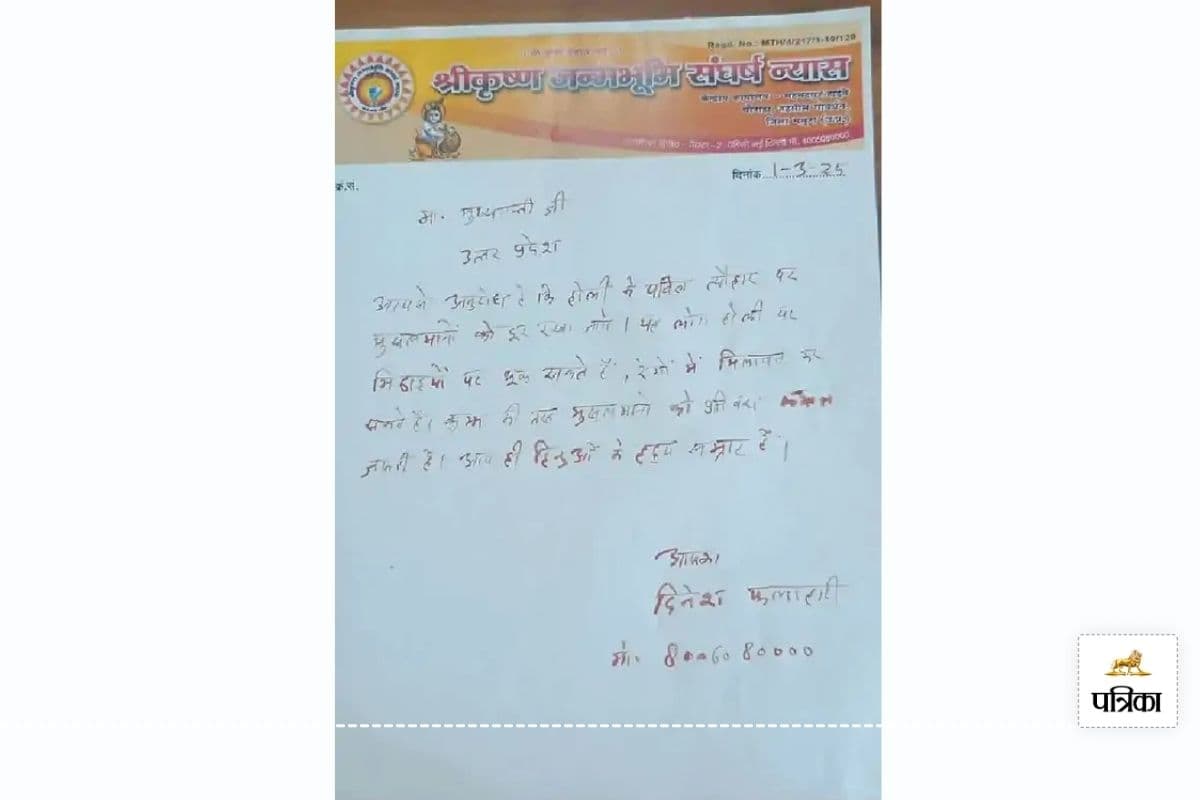 Regd. No.: MTH/4/217/1-50/129
श्रीकृष्ण जन्मभूमि संघर्ष न्यास
केन्द्रीय कार्यालय
जिला मथुरा (उ.प्र.)
क्र.स.
दिनांक 1-3-25
मा. मुख्यमंत्री जी
उत्तर प्रदेश
आपसे अनुरोध है कि होली के पवित्र त्यौहार पर
मुसलमानों को दूर रखा जाये। यह लोग होली पर
मिठाइयों पर थूक सकते हैं, रंगों में मिलावट कर
सकते है। कुम्भ की तरह मुसलमानों को प्रतिबंध
जरूरी है। आप ही हिन्दुओं के हृदय सम्राट हैं।
आपका
दिनेश फलाहारी
मो. 8006080000
पत्रिका